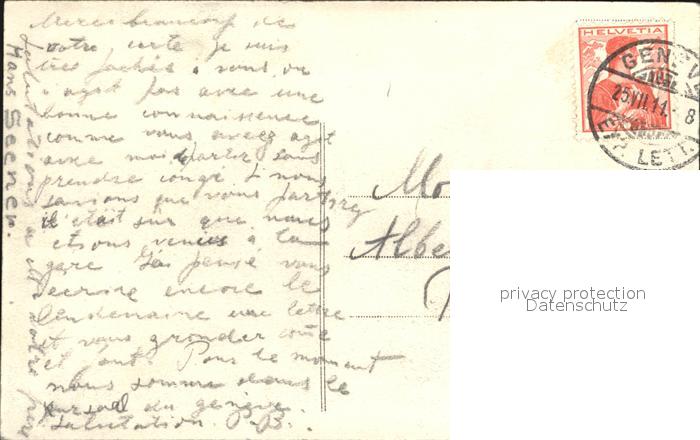 Merci beaucoup de
votre carte je suis
très fachée, vous
n'agit pas avec une
bonne connaissence
comme vous avez agit
avec moi partir sans
prendre congé si nous
savions que vous partirez
il était sûr que nous
étions venus à la
gare J'ai pensé vous
écrire encore le
lendemaine une lettre
et vous gronder come
il faut. Pour le moment
nous somme dans le
kursaal du genève.
Salutation.
Salutations
Hans Beener.
HELVETIA
GENÈV
25.VII.11. 8
EXP. LETT
Mo
Albe
privacy protection
Datenschutz